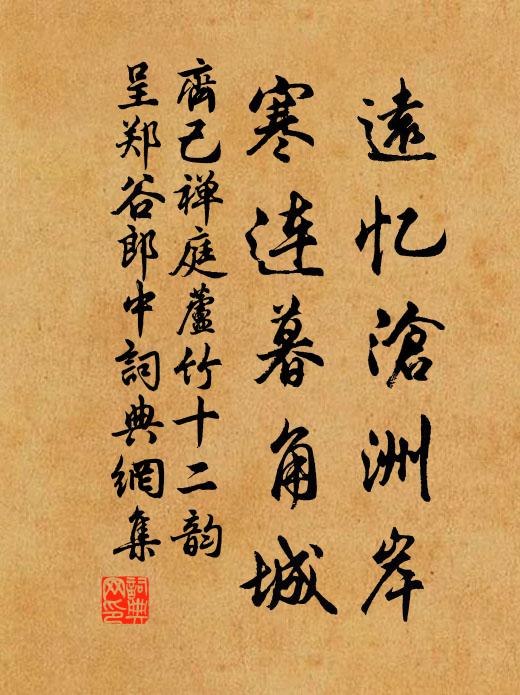 遠忆滄洲岸
寒连暮角城
齊己禅庭蘆竹十二韵
呈郑谷郎中詞典網集
詞典网印